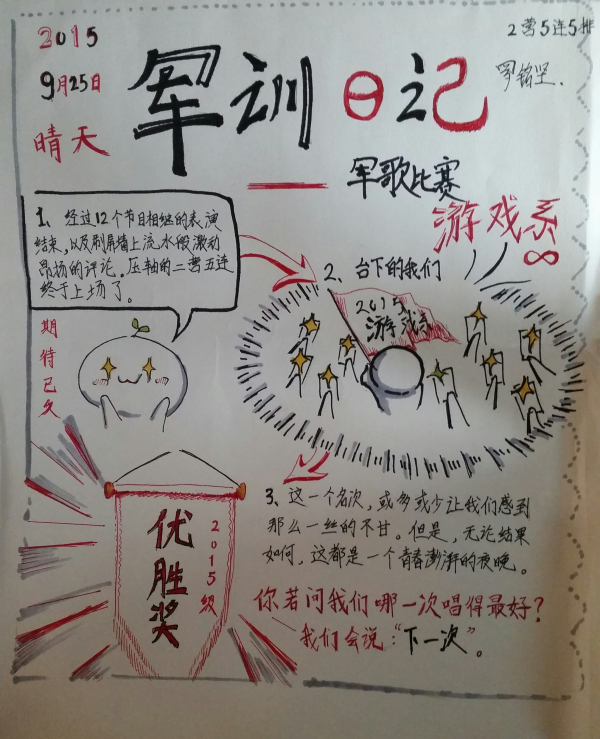 2015
9月25日
晴天
军训日记
2营5连5排
罗铭坚.
军歌比赛
游戏系∞
1、经过12个节目相继的表演
结束,以及刷屏墙上流水般激动
昂扬的评论。压轴的二营五连
终于上场了。
期待已久
2、台下的我们
2015
游戏系
优胜奖
2015级
3、这一个名次,或多或少让我们感到
那么一丝的不甘。但是,无论结果
如何,这都是一个青春澎湃的夜晚。
你若问我们哪一次唱得最好?
我们会说“下一次”。